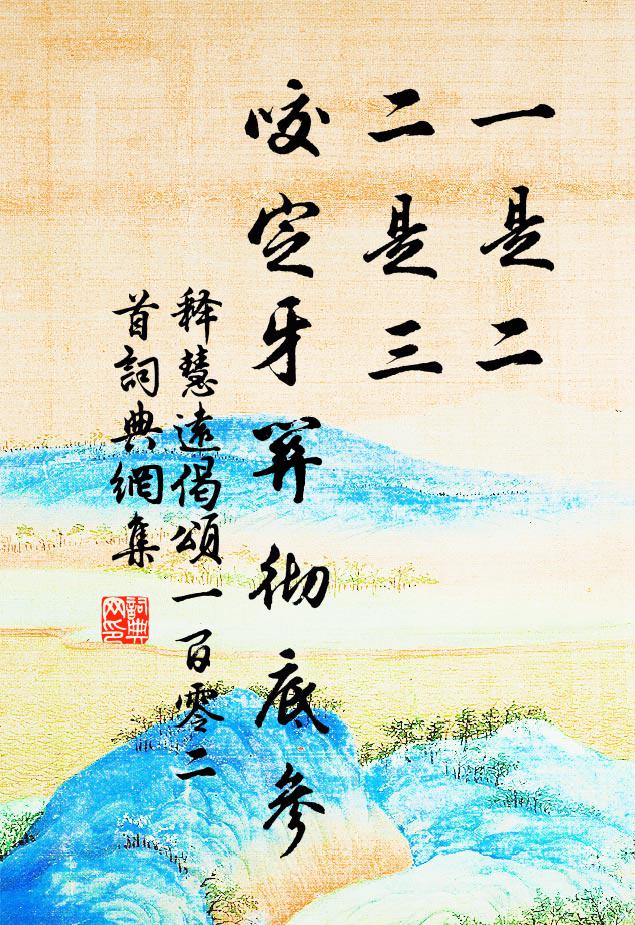 一是二
二是三
咬定牙关彻底参
释慧遠偈頌一百零二
首詞典網集
詞典
网印